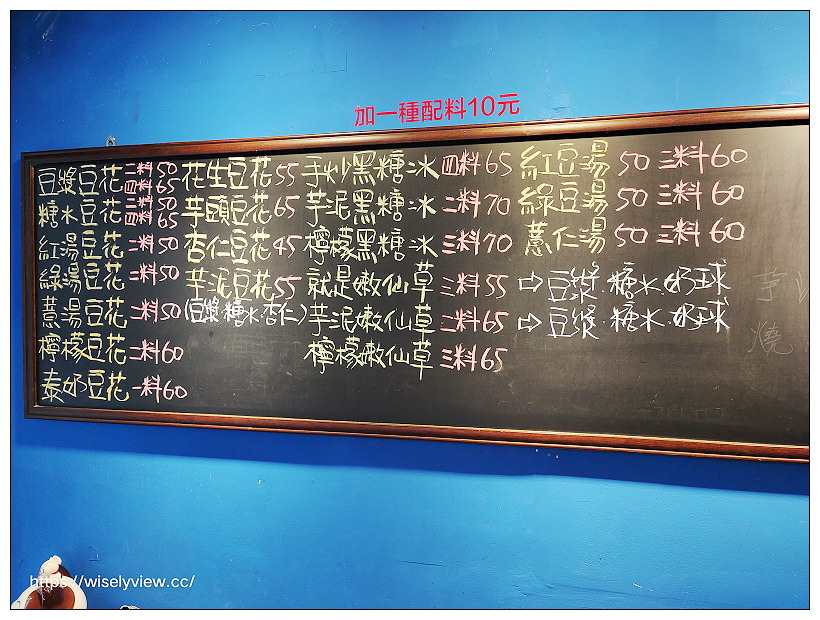 加一種配料10元
豆漿豆花 二料50 四料65
糖水豆花 二料50 四料65
紅湯豆花 二料50
綠湯豆花 二料50
薏湯豆花 二料50
檸檬豆花 二料60
泰奶豆花 一料60
花生豆花 55
芋頭豆花 65
杏仁豆花 45
芋泥豆花 55
(豆漿.糖水.杏仁)
手炒黑糖冰 四料65
芋泥黑糖冰 二料70
檸檬黑糖冰 三料70
就是嫩仙草 三料55 ⇨豆漿.糖水.奶球
芋泥嫩仙草 二料65 ⇨豆漿.糖水.奶球
檸檬嫩仙草 三料65
紅豆湯 50 三料60
綠豆湯 50 三料60
薏仁湯 50 三料60
芋
燒
https://wiselyview.cc/